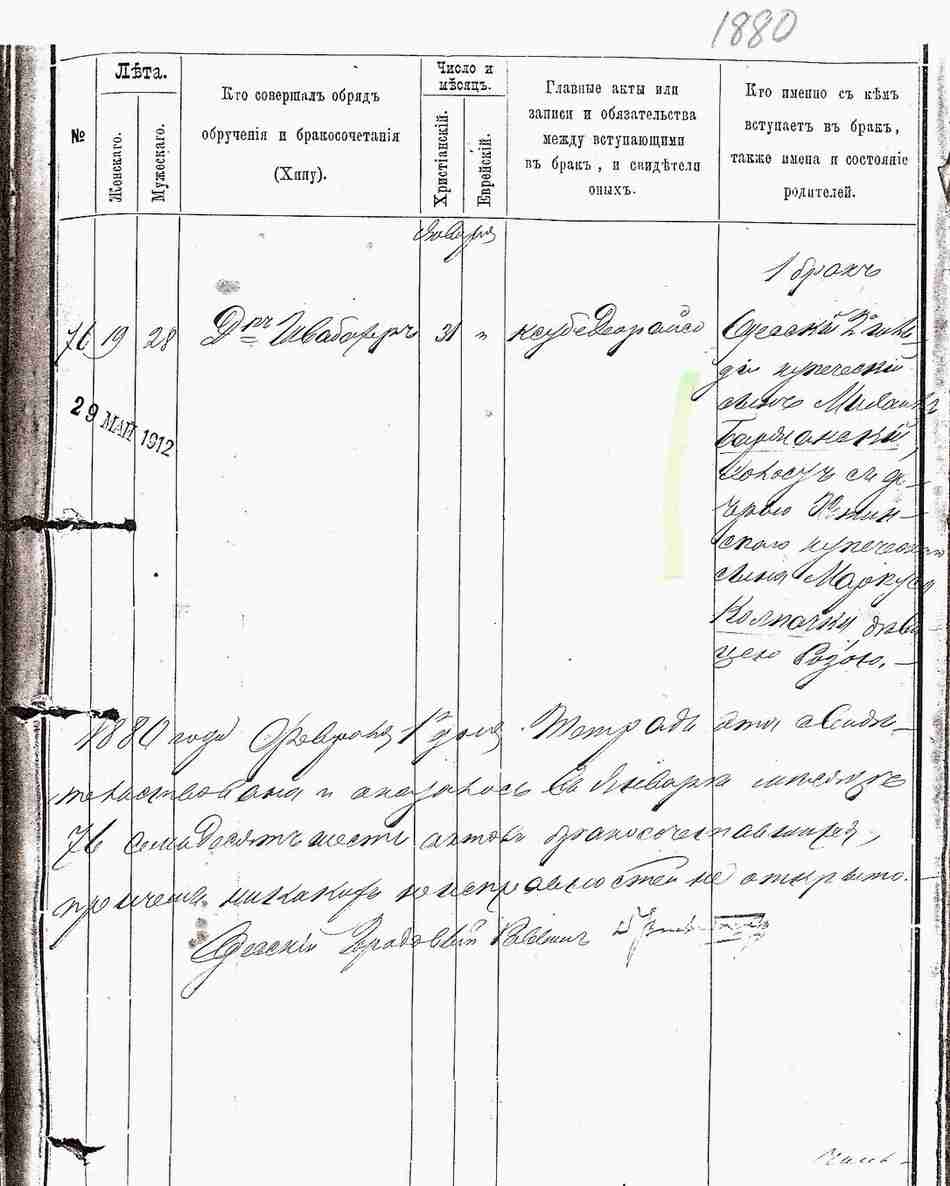 1880
№
Лѣта.
Женскаго.
Мужескаго.
Кто совершалъ обрядъ
обрученія и бракосочетанія
(Хипу).
Число и
мѣсяцъ.
Христіанскій.
Еврейскій.
Главные акты или
записи и обязательства
между вступающими
въ бракъ, и свидѣтели
оныхъ.
Кто именно съ кѣмъ
вступаетъ въ бракъ,
также имена и состояніе
родителей.
Января
1 бракъ
76 19 28 Д-ръ Швабахеръ 31 " ксубе Дорайсо
Одесскій 2й гиль-
діи купеческій
сынъ Михаилъ
29 МАЙ 1912
сь до-
черью
скаго купеческаго
сына Маркуса
дѣви-
цею Розою.
1880 года Февраля 1го дня. Тетрадь эта свидѣ-
тельствована и оказалось въ Январѣ мѣсяцѣ
76 семьдесятъ шесть актовъ бракосочетавшихся,
при чемъ никакихъ неисправностей не открыто.
Одесскій Градовый Раввинъ